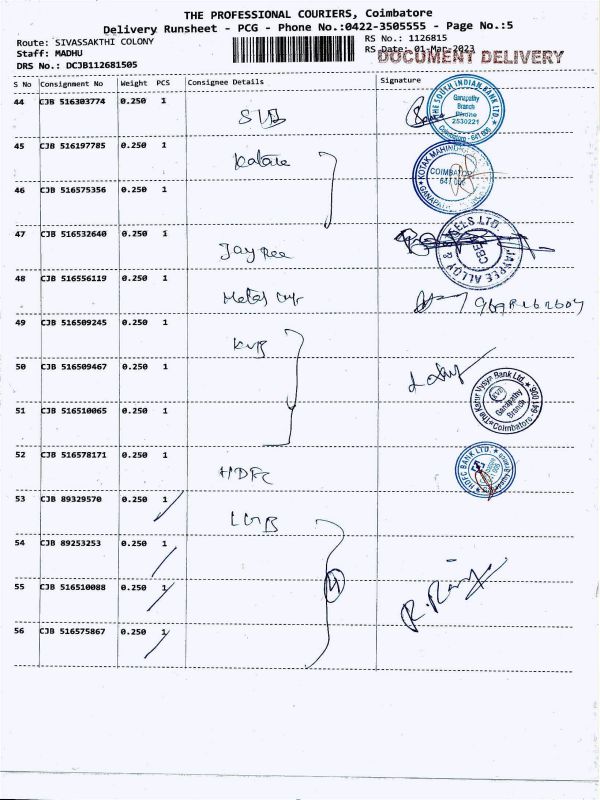 THE PROFESSIONAL COURIERS, Coimbatore
Delivery Runsheet - PCG - Phone No.:0422-3505555 - Page No.:5
Route: SIVASSAKTHI COLONY
RS No.: 1126815
Staff: MADHU
RS Date: 01-Mar-2023
DOCUMENT DELIVERY
DRS No.: DCJB112681505
S No Consignment No Weight PCS Consignee Details Signature
44 CJB 516303774 0.250 1 SIB
THE SOUTH INDIAN BANK LTD
Ganapathy
Branch
Phone
2530221
Coimbatore - 641 006
45 CJB 516197785 0.250 1
KOTAK MAHINDRA
COIMBATORE
641 006
46 CJB 516575356 0.250 1
47 CJB 516532640 0.250 1 Jaypee
JAYPEE ALLOY
CBE
48 CJB 516556119 0.250 1
49 CJB 516509245 0.250 1 KVB
50 CJB 516509467 0.250 1
The Karur Vysya Bank Ltd.
Ganapathy
Branch
Coimbatore - 641 006
51 CJB 516510065 0.250 1
52 CJB 516578171 0.250 1 HDFC
HDFC BANK LTD.
53 CJB 89329570 0.250 1
54 CJB 89253253 0.250 1
4
55 CJB 516510088 0.250 1
56 CJB 516575867 0.250 1